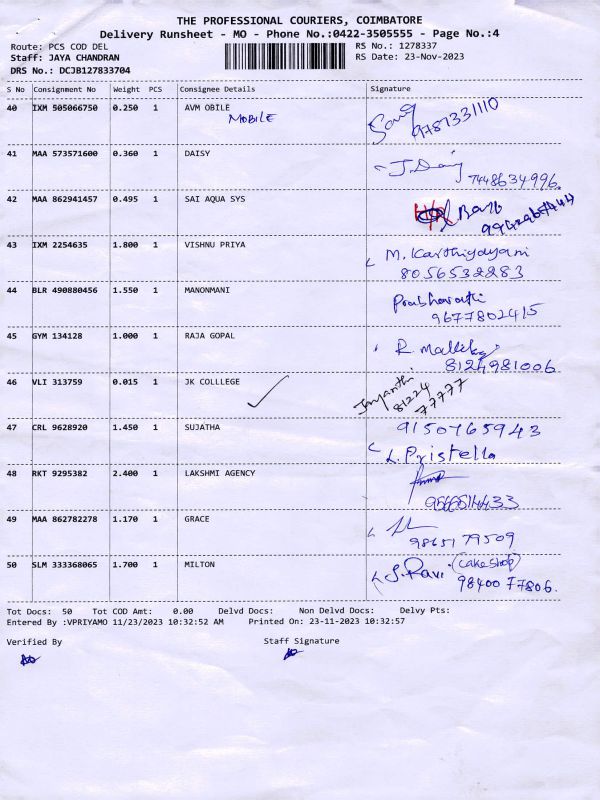 THE PROFESSIONAL COURIERS, COIMBATORE
Delivery Runsheet - MO - Phone No.:0422-3505555 - Page No.:4
Route: PCS COD DEL RS No.: 1278337
Staff: JAYA CHANDRAN RS Date: 23-Nov-2023
DRS No.: DCJB127833704
S No Consignment No Weight PCS Consignee Details Signature
40 IXM 505066750 0.250 1 AVM OBILE
MOBILE 9787331110
41 MAA 573571600 0.360 1 DAISY J. Daisy
7448634996.
42 MAA 862941457 0.495 1 SAI AQUA SYS
43 IXM 2254635 1.800 1 VISHNU PRIYA M. Karthiyayani
8056532283
44 BLR 490880456 1.550 1 MANONMANI Prabhavathi
9677802415
45 GYM 134128 1.000 1 RAJA GOPAL R.
8124981006
46 VLI 313759 0.015 1 JK COLLLEGE Jayanthi
81224
77777
47 CRL 9628920 1.450 1 SUJATHA 9150765943
L. Pristella
48 RKT 9295382 2.400 1 LAKSHMI AGENCY
49 MAA 862782278 1.170 1 GRACE
9865179509
50 SLM 333368065 1.700 1 MILTON S. Ravi (cake shop)
98400 77806.
Tot Docs: 50 Tot COD Amt: 0.00 Delvd Docs: Non Delvd Docs: Delvy Pts:
Entered By :VPRIYAMO 11/23/2023 10:32:52 AM Printed On: 23-11-2023 10:32:57
Verified By Staff Signature